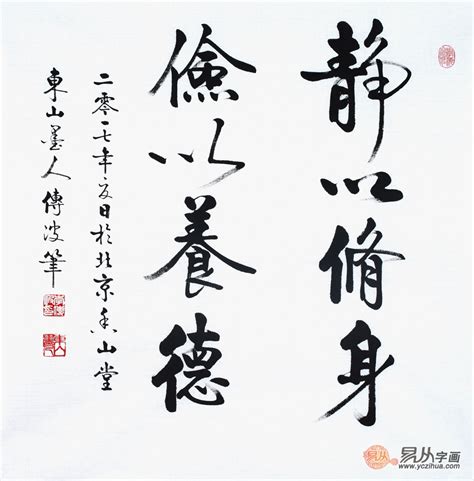 静以脩身
儉以養德
二零一七年夏日於北京香山堂
東山墨人傅波筆
易从字画
www.yczihua.com